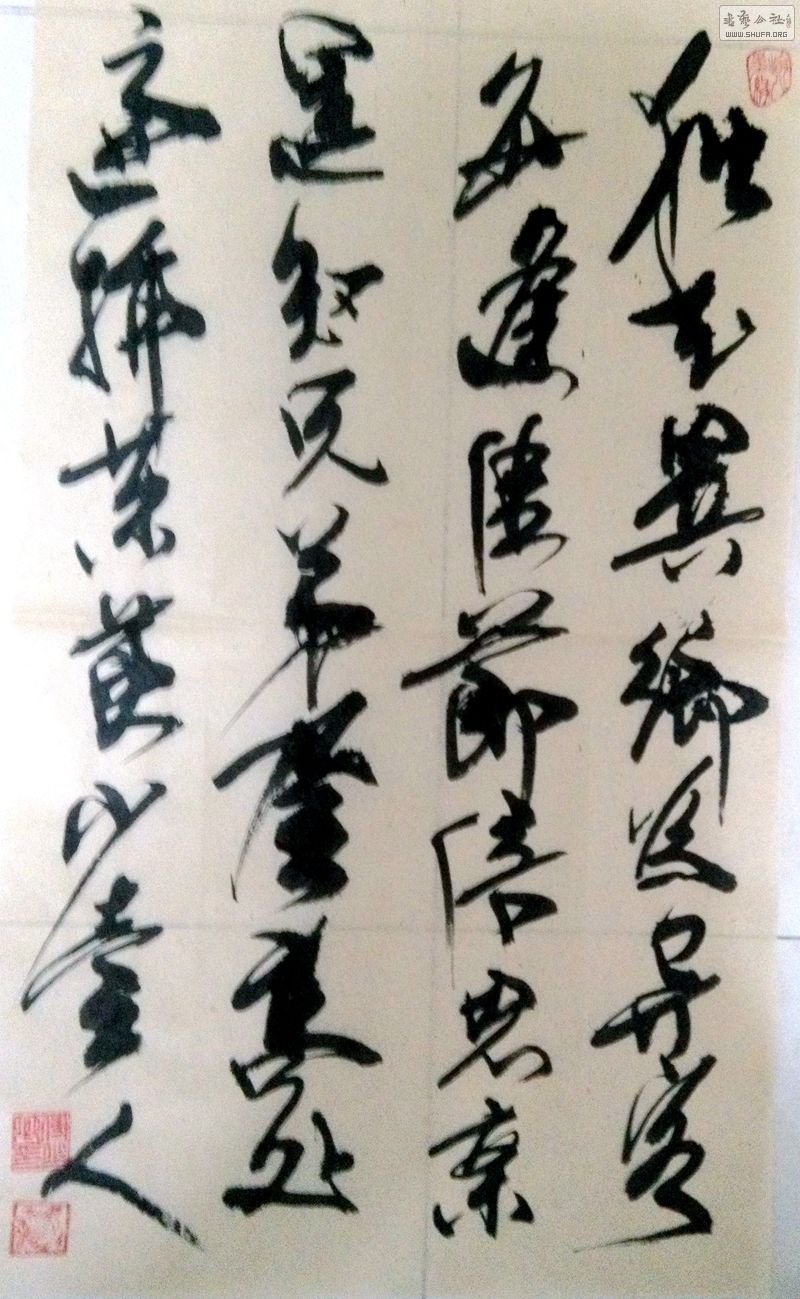 書藝公社
WWW.SHUFA.ORG
獨在異鄉為异客
每逢佳節倍思亲
遥知兄弟登高处
遍插茱萸少壹人